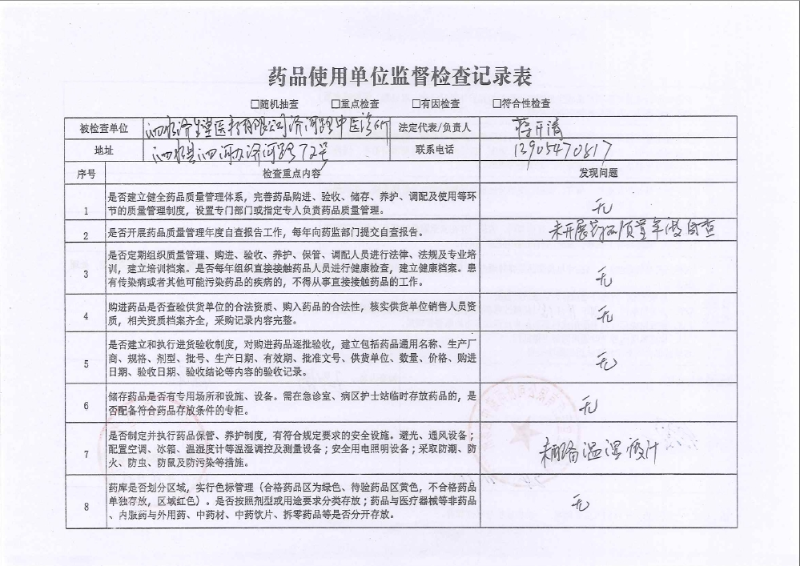 药品使用单位监督检查记录表
□随机抽查 □重点检查 □有因检查 □符合性检查
被检查单位 泗水济生堂医疗有限公司济河路中医诊所 法定代表/负责人
地址 泗水县泗河办济河路72号 联系电话 13905470817
序号 检查重点内容 发现问题
1 是否建立健全药品质量管理体系，完善药品购进、验收、储存、养护、调配及使用等环
节的质量管理制度，设置专门部门或指定专人负责药品质量管理。 无
2 是否开展药品质量管理年度自查报告工作，每年向药监部门提交自查报告。 未开展药品质量年度自查
3 是否定期组织质量管理、购进、验收、养护、保管、调配人员进行法律、法规及专业培
训，建立培训档案。是否每年组织直接接触药品人员进行健康检查，建立健康档案。患
有传染病或者其他可能污染药品的疾病的，不得从事直接接触药品的工作。 无
4 购进药品是否查验供货单位的合法资质、购入药品的合法性，核实供货单位销售人员资
质，相关资质档案齐全，采购记录内容完整。 无
5 是否建立和执行进货验收制度，对购进药品逐批验收，建立包括药品通用名称、生产厂
商、规格、剂型、批号、生产日期、有效期、批准文号、供货单位、数量、价格、购进
日期、验收日期、验收结论等内容的验收记录。 无
6 储存药品是否有专用场所和设施、设备。需在急诊室、病区护士站临时存放药品的，是
否配备符合药品存放条件的专柜。 无
7 是否制定并执行药品保管、养护制度，有符合规定要求的安全设施。避光、通风设备；
配置空调、冰箱、温湿度计等温湿调控及测量设备；安全用电照明设备；采取防潮、防
火、防虫、防鼠及防污染等措施。 未配备温湿度计
8 药库是否划分区域，实行色标管理（合格药品区为绿色、待验药品区黄色，不合格药品
单独存放，区域红色）。是否按照剂型或用途要求分类存放；药品与医疗器械等非药品
、内服药与外用药、中药材、中药饮片、拆零药品等是否分开存放。 无